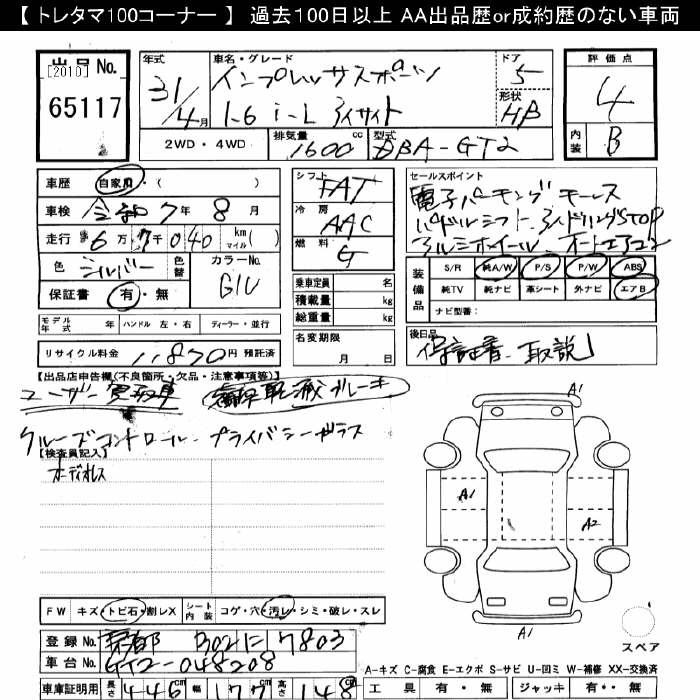 【 トレタマ100コーナー 】 過去100日以上 AA出品歴or成約歴のない車両
出品No.
[2010]
65117
年式
31/4月
車名・グレード
インプレッサスポーツ
1-6 i-L アイサイト
ドア
5
形状
HB
評価点
4
内装
B
2WD ・ 4WD
排気量
1600 cc
型式
DBA-GT2
車歴
自家用・( )
車検
令和7年8月
走行
6万7千040 km マイル( )
色
シルバー
色替
カラーNo.
G1U
保証書
有・無
シフト
FAT
冷房
AAC
燃料
G
乗車定員 名
積載量 kg
総重量 kg
名変期限
月 日
セールスポイント
電子パーキング キーレス
パドルシフト. アイドリングSTOP
アルミホイール. オートエアコン
装備品
S/R
純A/W
P/S
P/W
ABS
純TV
純ナビ
革シート
外ナビ
エアB
ナビ型番:
モデル年式 年
ハンドル 左・右
ディーラー・並行
リサイクル料金 11,870円 預託済
後日品
保証書. 取説
【出品店申告欄(不良箇所・欠品・注意事項等)】
ユーザー買取車 衝突軽減ブレーキ
クルーズコントロール. プライバシーガラス
【検査員記入】
オーディオレス
A1
A1
A2
A1
スペア
FW
キズ・トビ石・割レX
シート内装
コゲ・穴・汚レ・シミ・破レ・スレ
登録No.
京都 302 に 7803
車台No.
GT2-048208
車庫証明用
長さ 446cm 幅 177cm 高さ 148cm
A-キズ C-腐食 E-エクボ S-サビ U-凹ミ W-補修 XX-交換済
工具 有・無
ジャッキ 有・・無